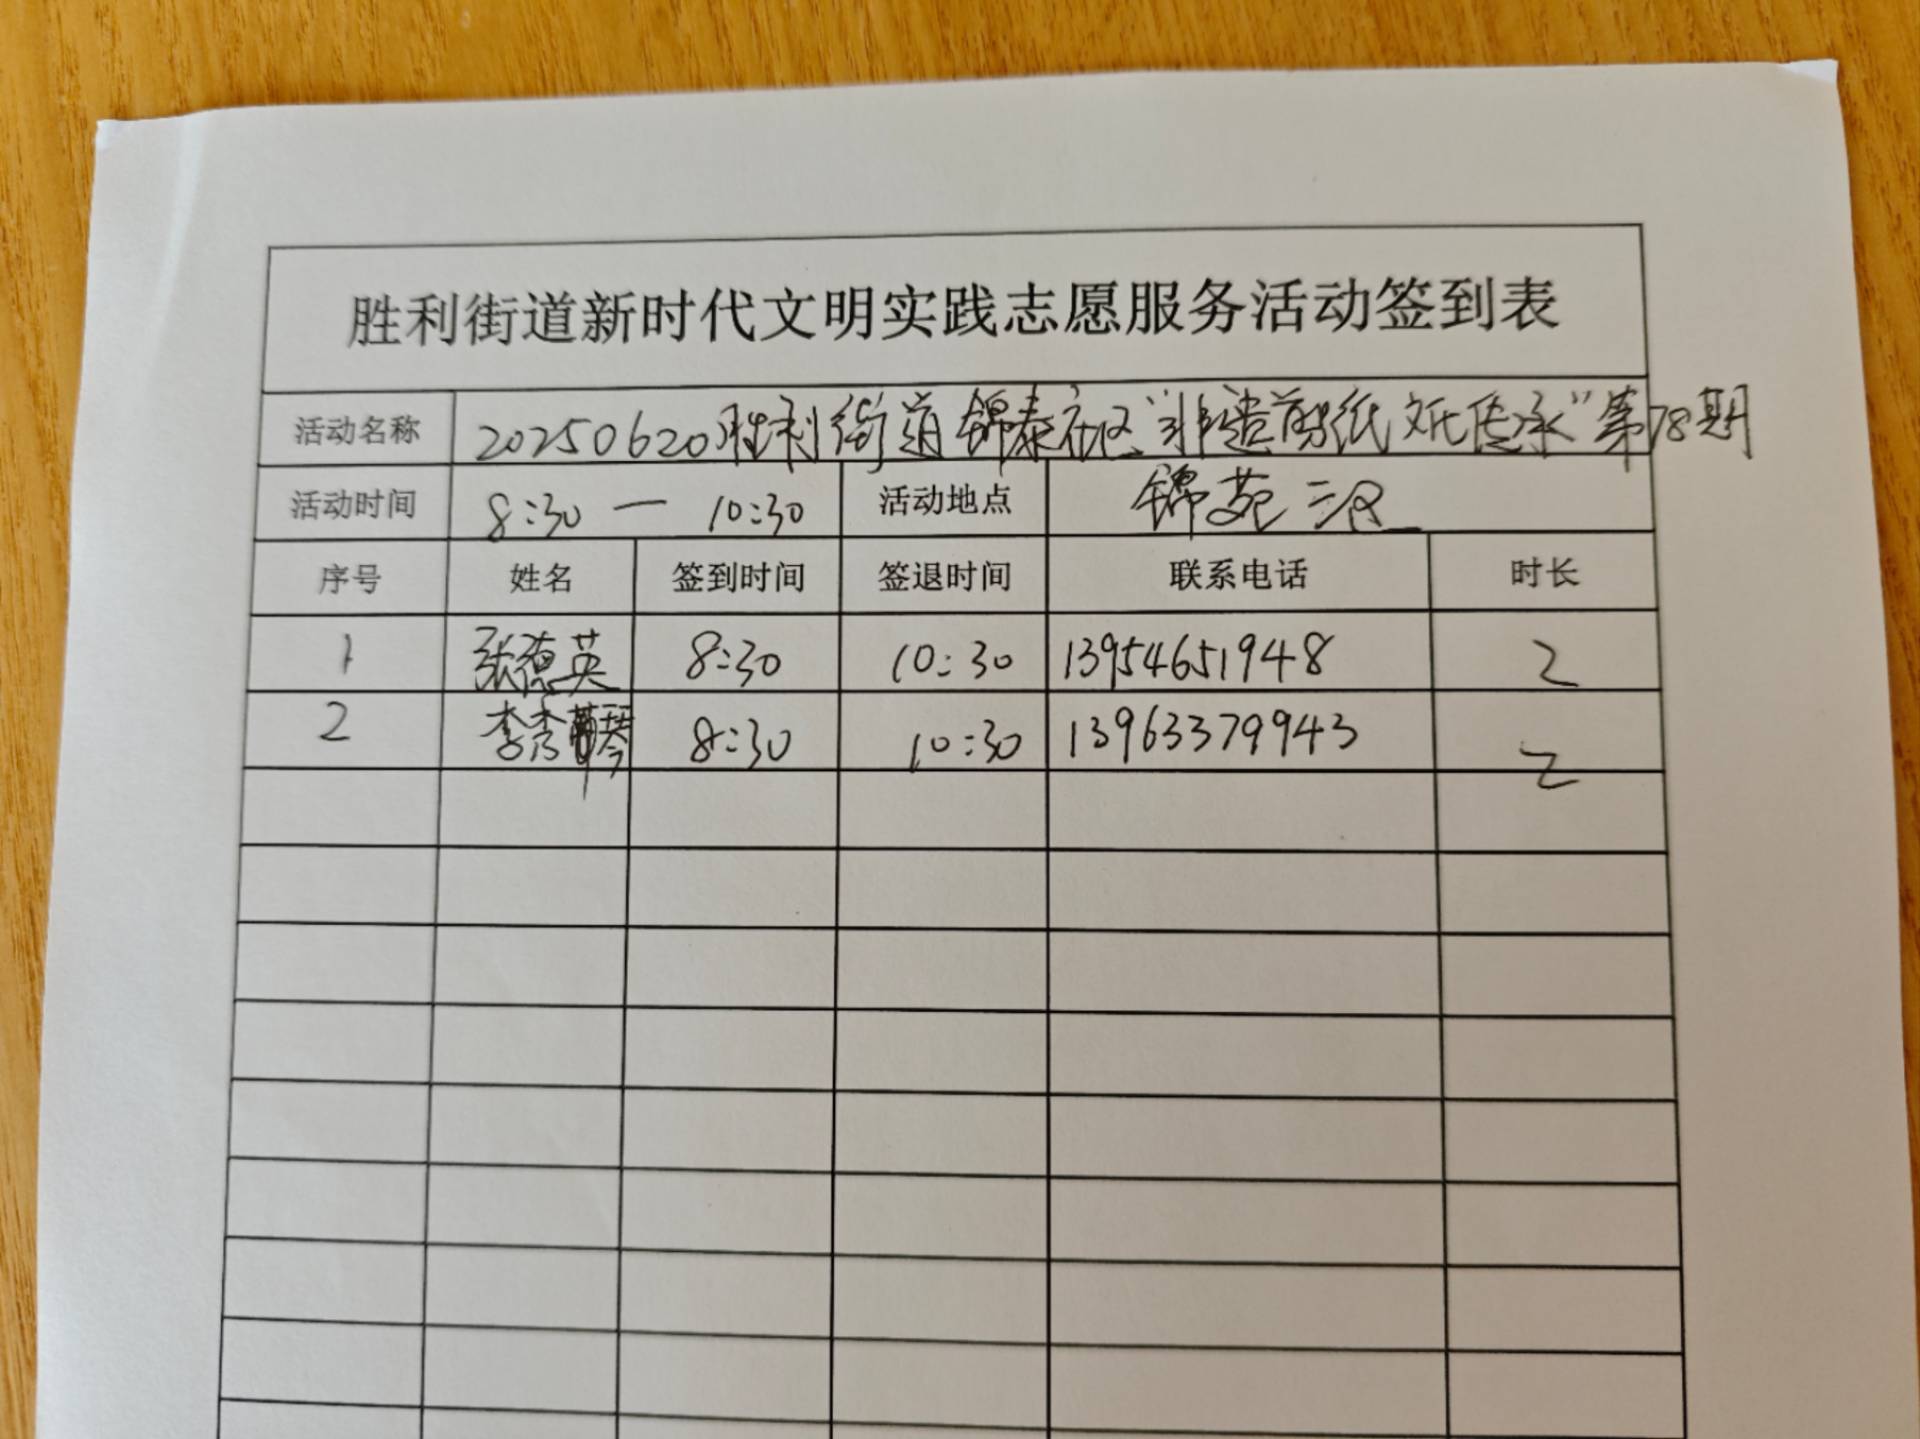 胜利街道新时代文明实践志愿服务活动签到表
活动名称 20250620胜利街道锦泰社区"非遗剪纸文化传承"第78期
活动时间 8:30 — 10:30 活动地点 锦苑三区
序号 姓名 签到时间 签退时间 联系电话 时长
1 张德英 8:30 10:30 13954651948 2
2 李秀 琴 8:30 10:30 13963379943 2